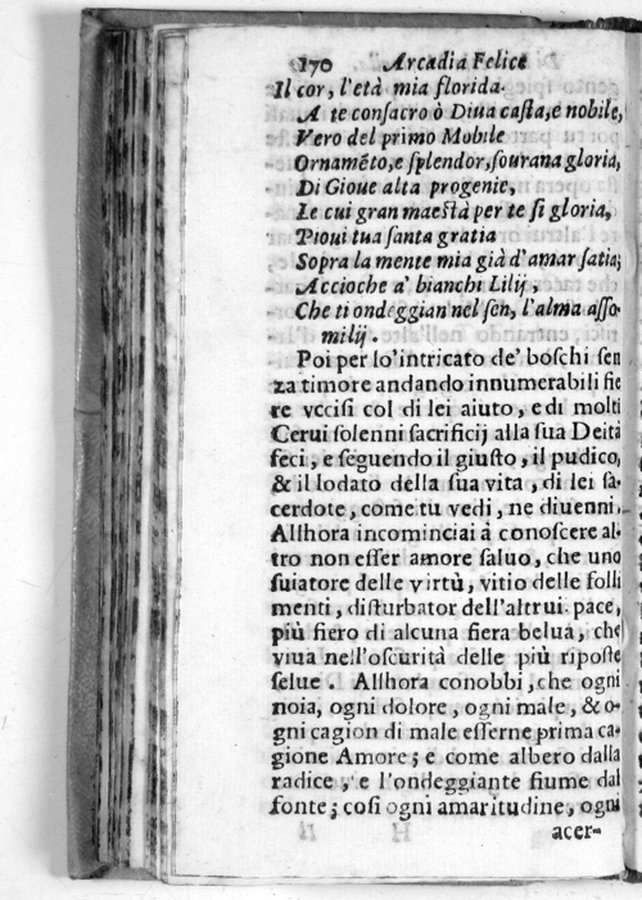 170 Arcadia Felice
Il cor, l'età mia florida.
A te conſacro ò Diua caſta, e nobile,
Vero del primo Mobile
Ornamẽto, e ſplendor, ſourana gloria,
Di Gioue alta progenie,
Le cui gran maeſtà per te ſi gloria,
Pioui tua ſanta gratia
Sopra la mente mia già d'amar ſatia;
Accioche a' bianchi Lilij,
Che ti ondeggian nel ſen, l'alma aſſo-
milij.
Poi per lo'intricato de' boſchi ſen
za timore andando innumerabili fie
re vcciſi col di lei aiuto, e di molti
Cerui ſolenni ſacrificij alla ſua Deità
feci, e ſeguendo il giuſto, il pudico,
& il lodato della ſua vita, di lei ſa-
cerdote, come tu vedi, ne diuenni.
Allhora incominciai à conoſcere al-
tro non eſſer amore ſaluo, che vno
ſuiatore delle virtù, vitio delle folli
menti, diſturbator dell'altrui pace,
più fiero di alcuna fiera belua, che
viua nell'oſcurità delle più ripoſte
ſelue. Allhora conobbi, che ogni
noia, ogni dolore, ogni male, & o-
gni cagion di male eſſerne prima ca-
gione Amore; e come albero dalla
radice, e l'ondeggiante fiume dal
fonte; coſi ogni amaritudine, ogni
acer-